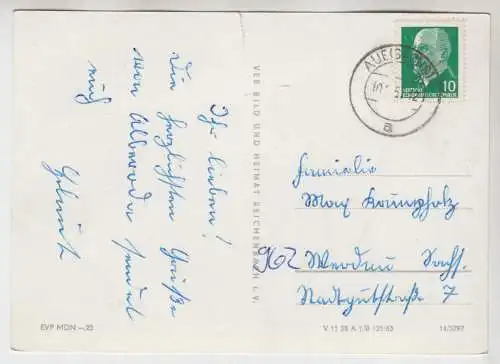 Ihr lieben!
Die herzlichsten Grüße
von Alberoda sendet
euch
Helmut
VEB BILD UND HEIMAT REICHENBACH I. V.
AUE (SACHS)
a
10
DEUTSCHE DEMOKRATISCHE REPUBLIK
Familie
Max Krumpholz
962 Werdau Sachs.
Stadtgutstraße 7
EVP MDN —.20
V 11 28 A 1/B 135/63
14/3297